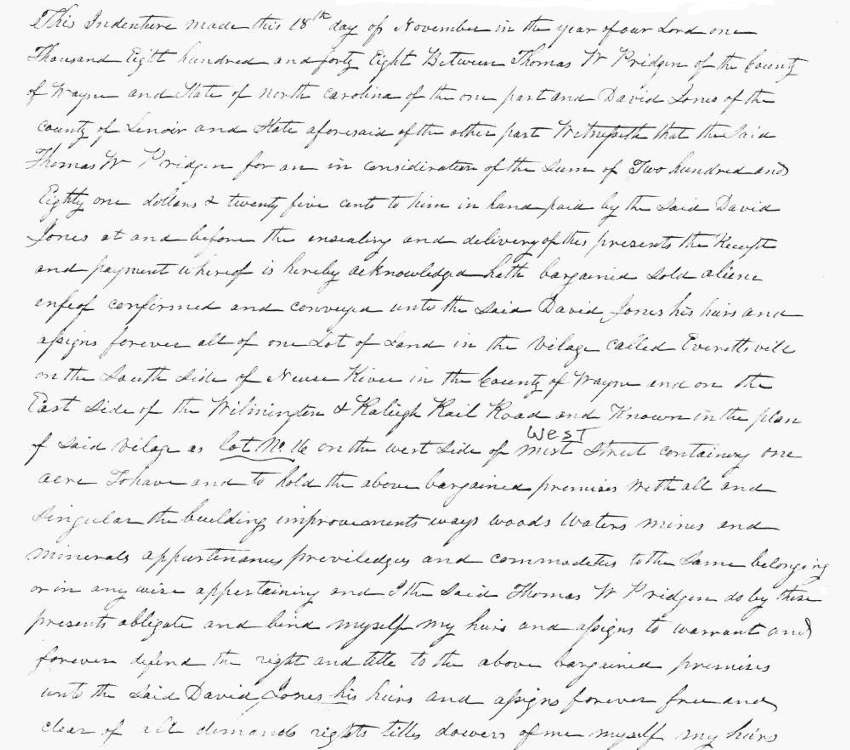 This Indenture made this 18th day of November in the year of our Lord one
Thousand Eight hundred and forty Eight Between Thomas W Pridgen of the County
of Wayne and State of North Carolina of the one part and David Jones of the
county of Lenoir and State aforesaid of the other part Witnesseth that the Said
Thomas W Pridgen for an in consideration of the Sum of Two hundred and
Eighty one dollars & twenty five cents to him in hand paid by the Said David
Jones at and before the ensealing and delivery of thes presents the Receipt
and payment whereof is hereby acknowledged hath bargained Sold aliene
enfeof confirmed and conveyed unto the Said David Jones his heirs and
assigns forever all of one Lot of Land in the Vilage called Everettsvill
on the South Side of Neuse River in the County of Wayne and on the
East Side of the Wilmington & Raleigh Rail Road and Known in the plan
of Said Vilage as Lot No 16 on the west Side of West Street containing one
West
acre To have and to hold the above bargained premises with all and
Singular the building improvements ways woods Waters mines and
minerals appurtenances previledges and commodeties to the Same belonging
or in any wise appertaining and I the Said Thomas W Pridgen do by these
presents obligate and bind myself my heirs and assigns to warrant and
forever defend the right and title to the above bargained premises
unto the Said David Jones his heirs and assigns forever free and
clear of all demands rights titles dowers of me myself my heirs